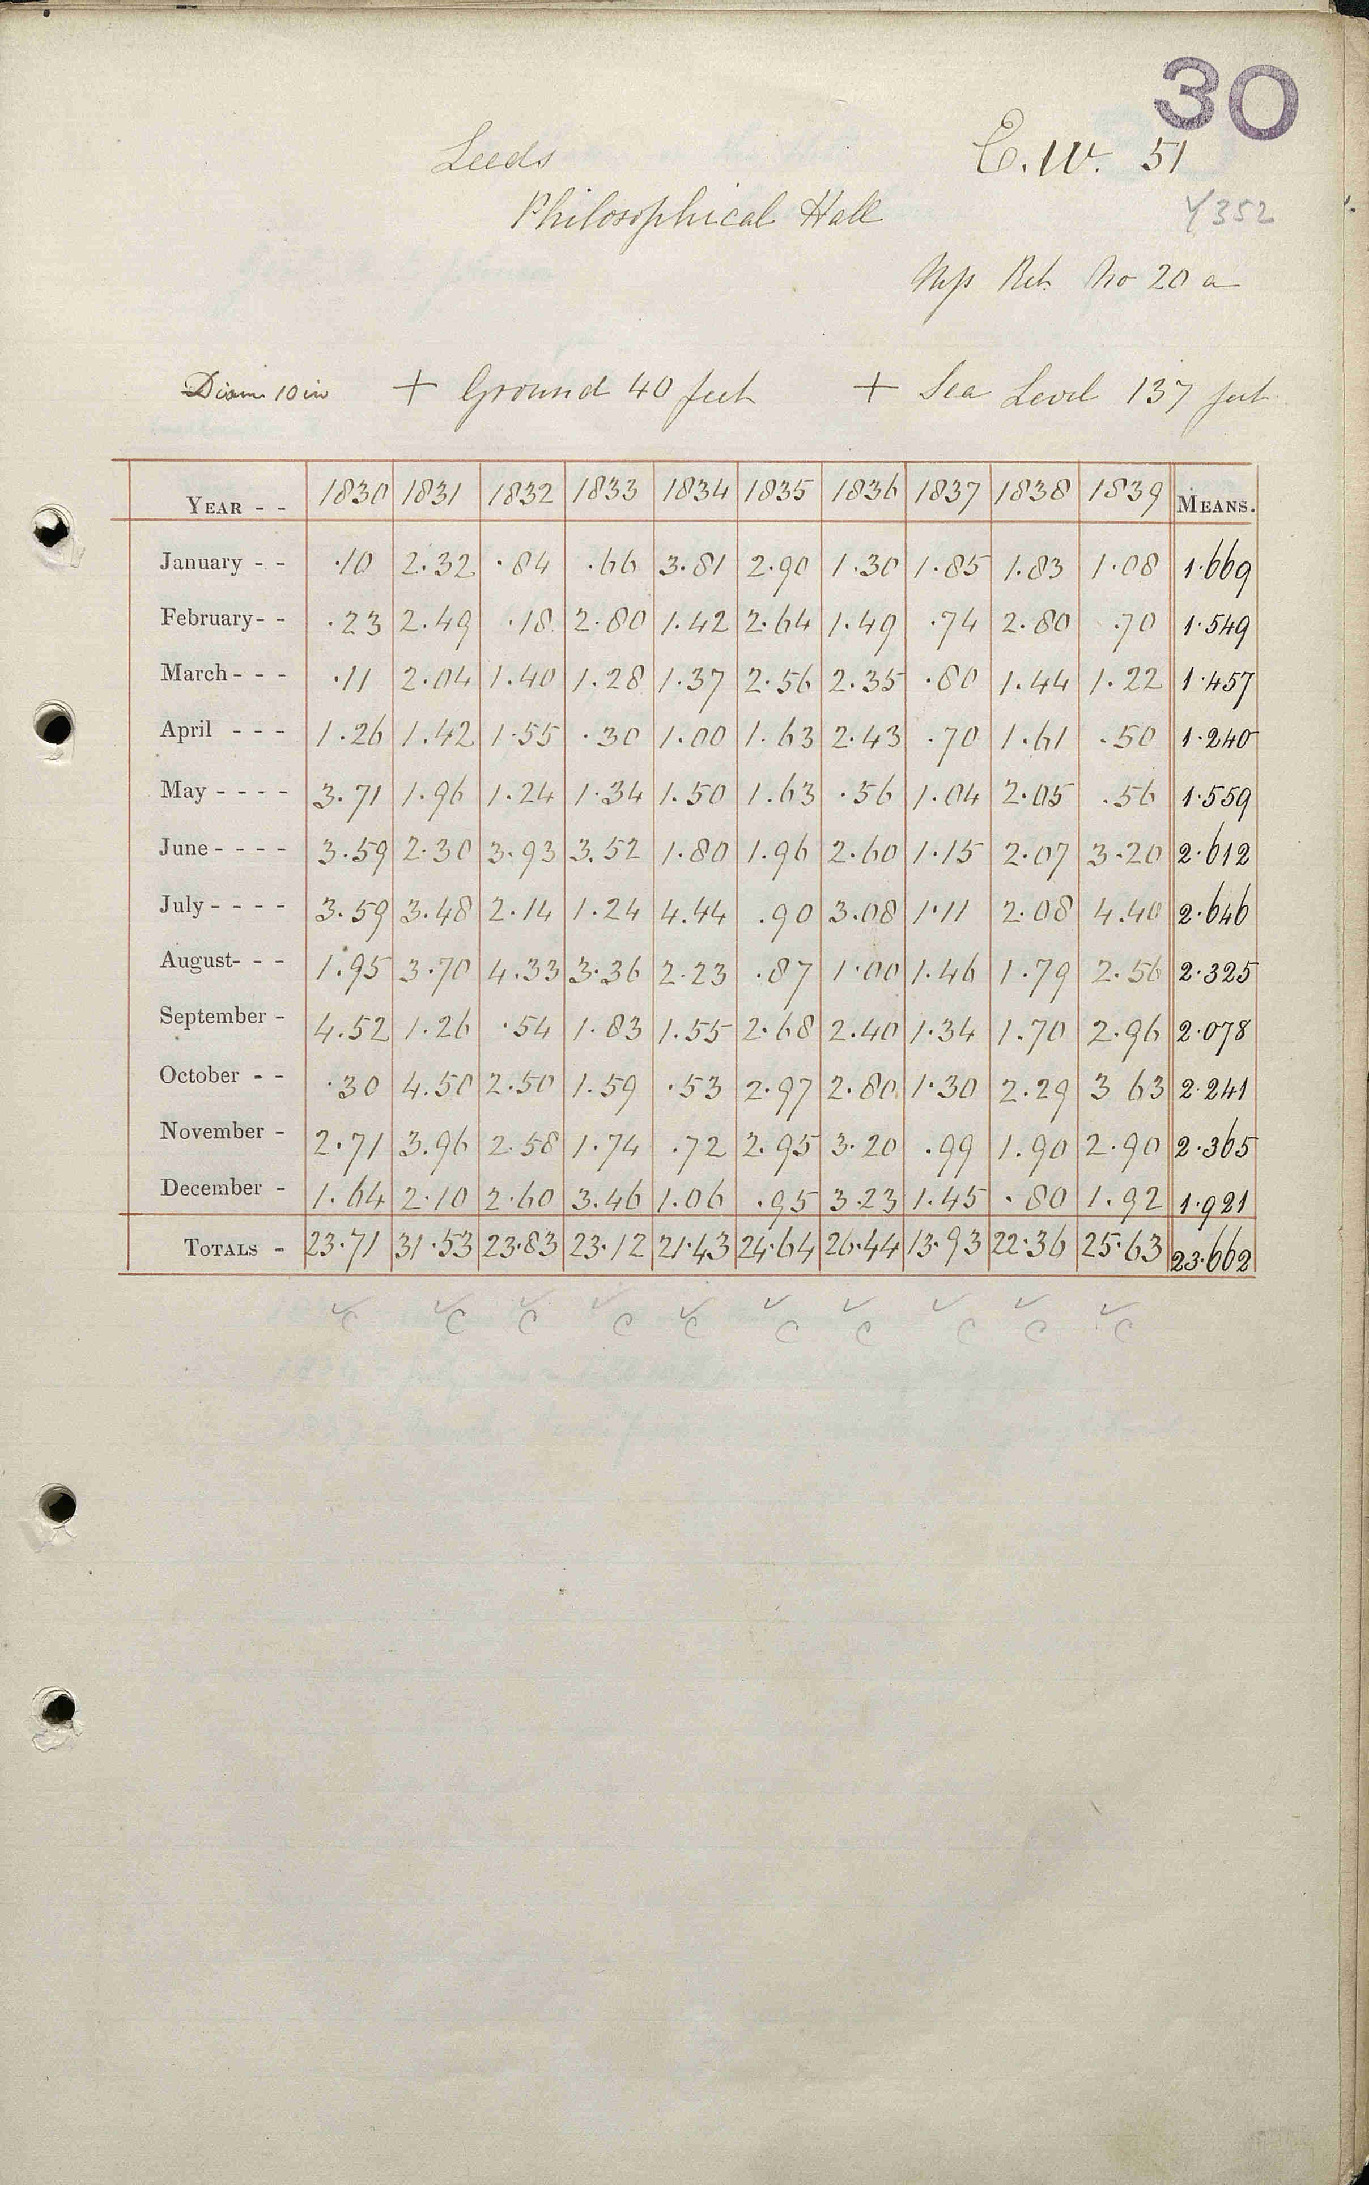 30
Leeds
E.W. 51
Philosophical Hall
4352
No 20 a
Diam 10 in + Ground 40 feet + Sea Level 137 feet
YEAR - - 1830 1831 1832 1833 1834 1835 1836 1837 1838 1839 MEANS.
January - - .10 2.32 .84 .66 3.81 2.90 1.30 1.85 1.83 1.08 1.669
February - - .23 2.49 .18 2.80 1.42 2.64 1.49 .74 2.80 .70 1.549
March - - - .11 2.04 1.40 1.28 1.37 2.56 2.35 .80 1.44 1.22 1.457
April - - - 1.26 1.42 1.55 .30 1.00 1.63 2.43 .70 1.61 .50 1.240
May - - - - 3.71 1.96 1.24 1.34 1.50 1.63 .56 1.04 2.05 .56 1.559
June - - - - 3.59 2.30 3.93 3.52 1.80 1.96 2.60 1.15 2.07 3.20 2.612
July - - - - 3.59 3.48 2.14 1.24 4.44 .90 3.08 1.11 2.08 4.40 2.646
August - - - 1.95 3.70 4.33 3.36 2.23 .87 1.00 1.46 1.79 2.56 2.325
September - 4.52 1.26 .54 1.83 1.55 2.68 2.40 1.34 1.70 2.96 2.078
October - - .30 4.50 2.50 1.59 .53 2.97 2.80 1.30 2.29 3 63 2.241
November - 2.71 3.96 2.58 1.74 .72 2.95 3.20 .99 1.90 2.90 2.365
December - 1.64 2.10 2.60 3.46 1.06 .95 3.23 1.45 .80 1.92 1.921
TOTALS - 23.71 31.53 23.83 23.12 21.43 24.64 26.44 13.93 22.36 25.63 23.662
✓C ✓C ✓C ✓C ✓C ✓C ✓C ✓C ✓C ✓C